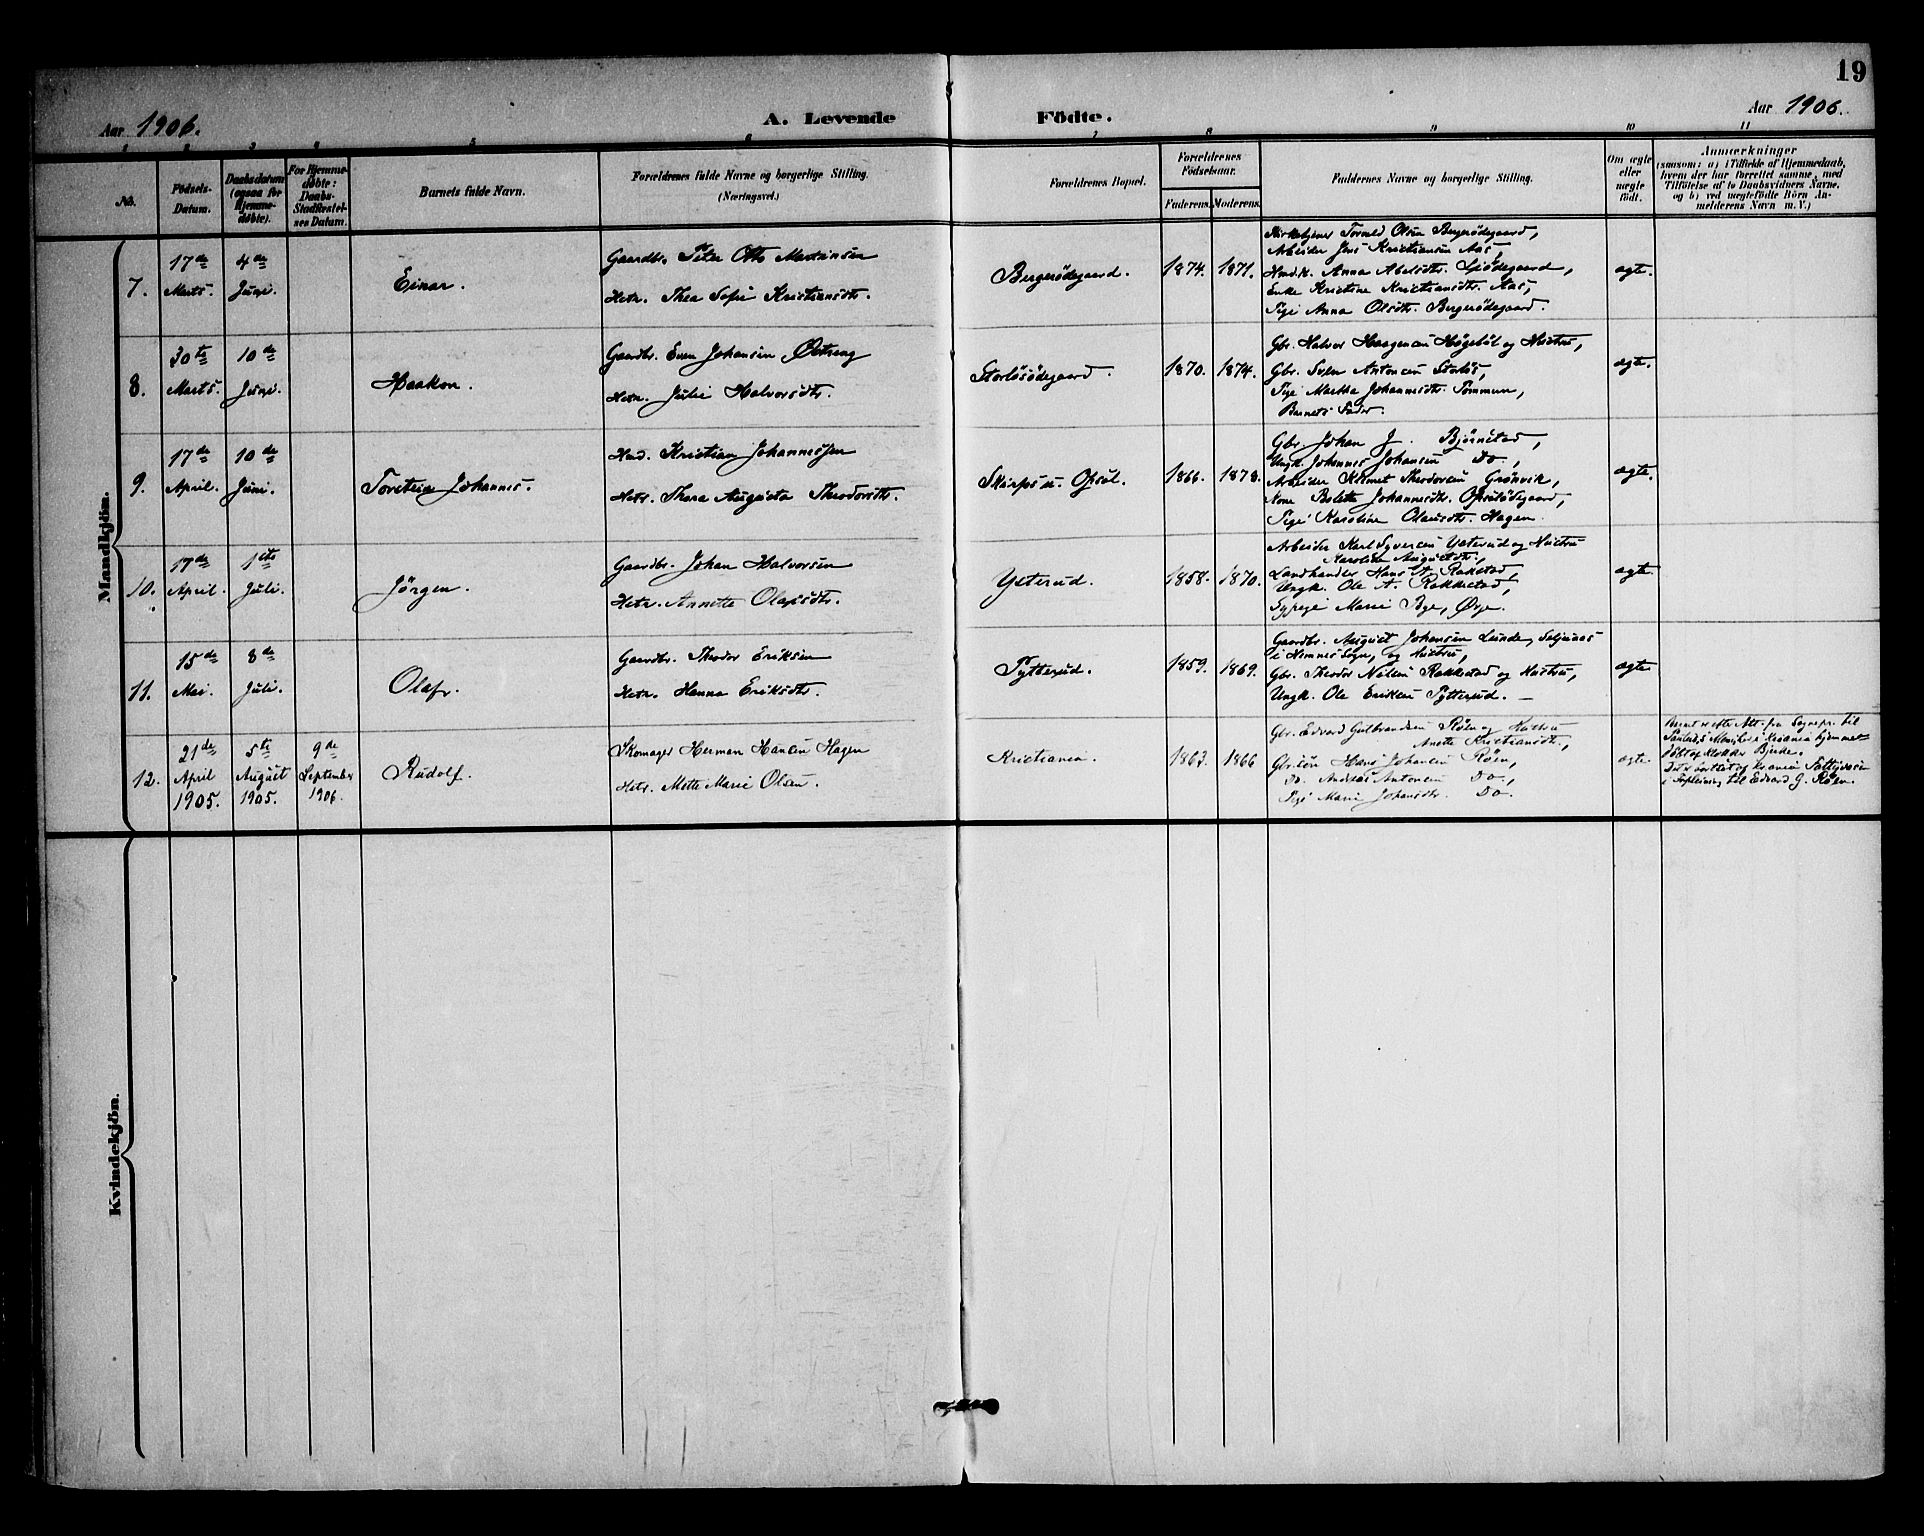 19
Aar 1906.
A. Levende
Födte.
Aar 1906.
1 2 3 4 5 6 7 8 9 10 11
No.
Födsels-
Datum.
Daabsdatum
(ogsaa for
Hjemme-
døbte).
For Hjemme-
døbte:
Daabs-
Stadfæstel-
ses Datum.
Barnets fulde Navn.
Forældrenes fulde Navne og borgerlige Stilling.
(Næringsvei.)
Forældrenes Bopæl.
Forældrenes
Födselsaar.
Faderens.
Moderens.
Faddernes Navne og borgerlige Stilling.
Om ægte
eller
uægte
født.
Anmærkninger
(saasom: a) i Tilfælde af Hjemmedaab,
hvem der har forrettet samme, med
Tilføielse af to Daabsvidners Navne,
og b) ved uægtefödte Börn An-
melderens Navn m. V.)
Mandkjön.
7.
17de
Marts.
4de
Juni.
Einar.
Gaardbr. Peter Otto Martinsen
Hstr. Thea Sofie Kristiansdtr.
Bergerödegaard.
1874.
1871.
Kirketjener Tormod Olsen Bergerödegaard,
Arbeider Jens Kristiansen Aas,
Anna Abelsdtr.
Enke Kristine Kristiansdtr. Aas,
Pige Anna Olsdtr. Bergerödegaard.
ægte.
8.
30te
Marts.
10de
Juni.
Haakon.
Gaardbr. Even Johansen Østreng
Hstr. Julie Halvorsdtr.
Storlösödegaard.
1870.
1874.
Gbr. Halvor Haagensen Høgebøl og Hustru,
Gbr. Sven Antonsen Storløs,
Pige Martha Johannesdtr.
Barnets Fader.
ægte.
9.
17de
April.
10de
Juni.
Johannes.
Kristian Johannessen
Hstr. Thora Augusta Theodorsdtr.
Ofsul.
1866.
1878.
Gbr. Johan J. Bjørnstad,
Ungk. Johannes Johansen Do.,
Arbeider Theodorsen Grönvik,
Kone Bolette Johannesdtr.
Pige Karoline Olausdtr. Hagen.
ægte.
10.
17de
April.
1ste
Juli.
Jörgen.
Gaardbr. Johan Halvorsen
Hstr. Annette Olafsdtr.
Ysterud.
1858.
1870.
Arbeider Karl Syversen Ysterud og Hustru
Karoline Augustdtr.,
Landhandler Hans A. Rakkestad,
Ungk. Ole A. Rakkestad,
Sypige Marie Bye, Ørje.
ægte.
11.
15de
Mai.
8de
Juli.
Olaf.
Gaardbr. Theodor Eriksen
Hstr. Hanna Eriksdtr.
Pytterud.
1859.
1869.
Gaardbr. August Johansen Lunde,
i Hemnes Sogn, og Hustru,
Gbr. Theodor Nilsen Rakkestad og Hustru,
Ungk. Ole Eriksen Pytterud.
ægte.
12.
21de
April
1905.
5te
August
1905.
9de
September
1906.
Rudolf.
Skomager Herman Hansen Hagen
Hstr. Mette Marie Olsen.
Kristiania.
1863.
1866
Gbr. Edvard Gulbrandsen Röen og Hustru
Anette Kristiansdtr.,
Gbr.sön Hans Johansen Röen,
Do. Andreas Antonsen Do,
Pige Marie Johansdtr. Do.
ægte.
Barnet er efter Att. fra Sognepr. til
Paulus Menighed i Kristiania hjemme-
döbt af Klokker Bjerke.
Det er bortsat af Kr.ania Fattigvæsen
til Edvard G. Röen.
Kvindekjön.